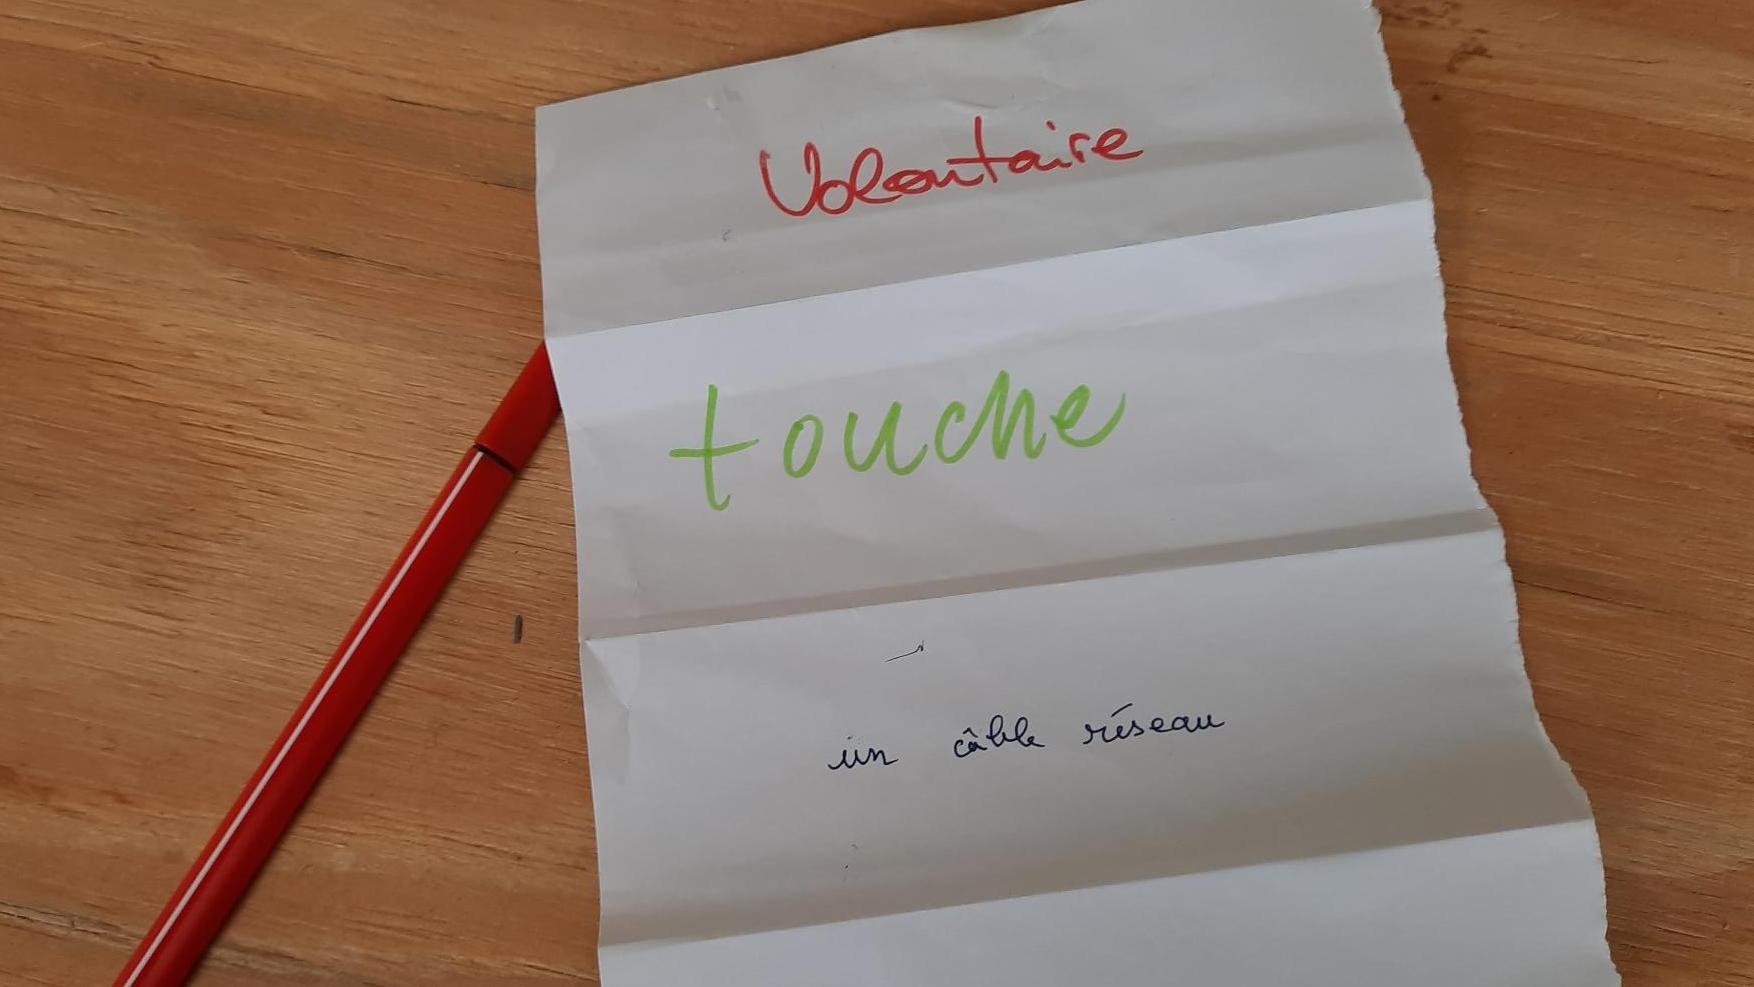 Volontaire
touche
un câble réseau